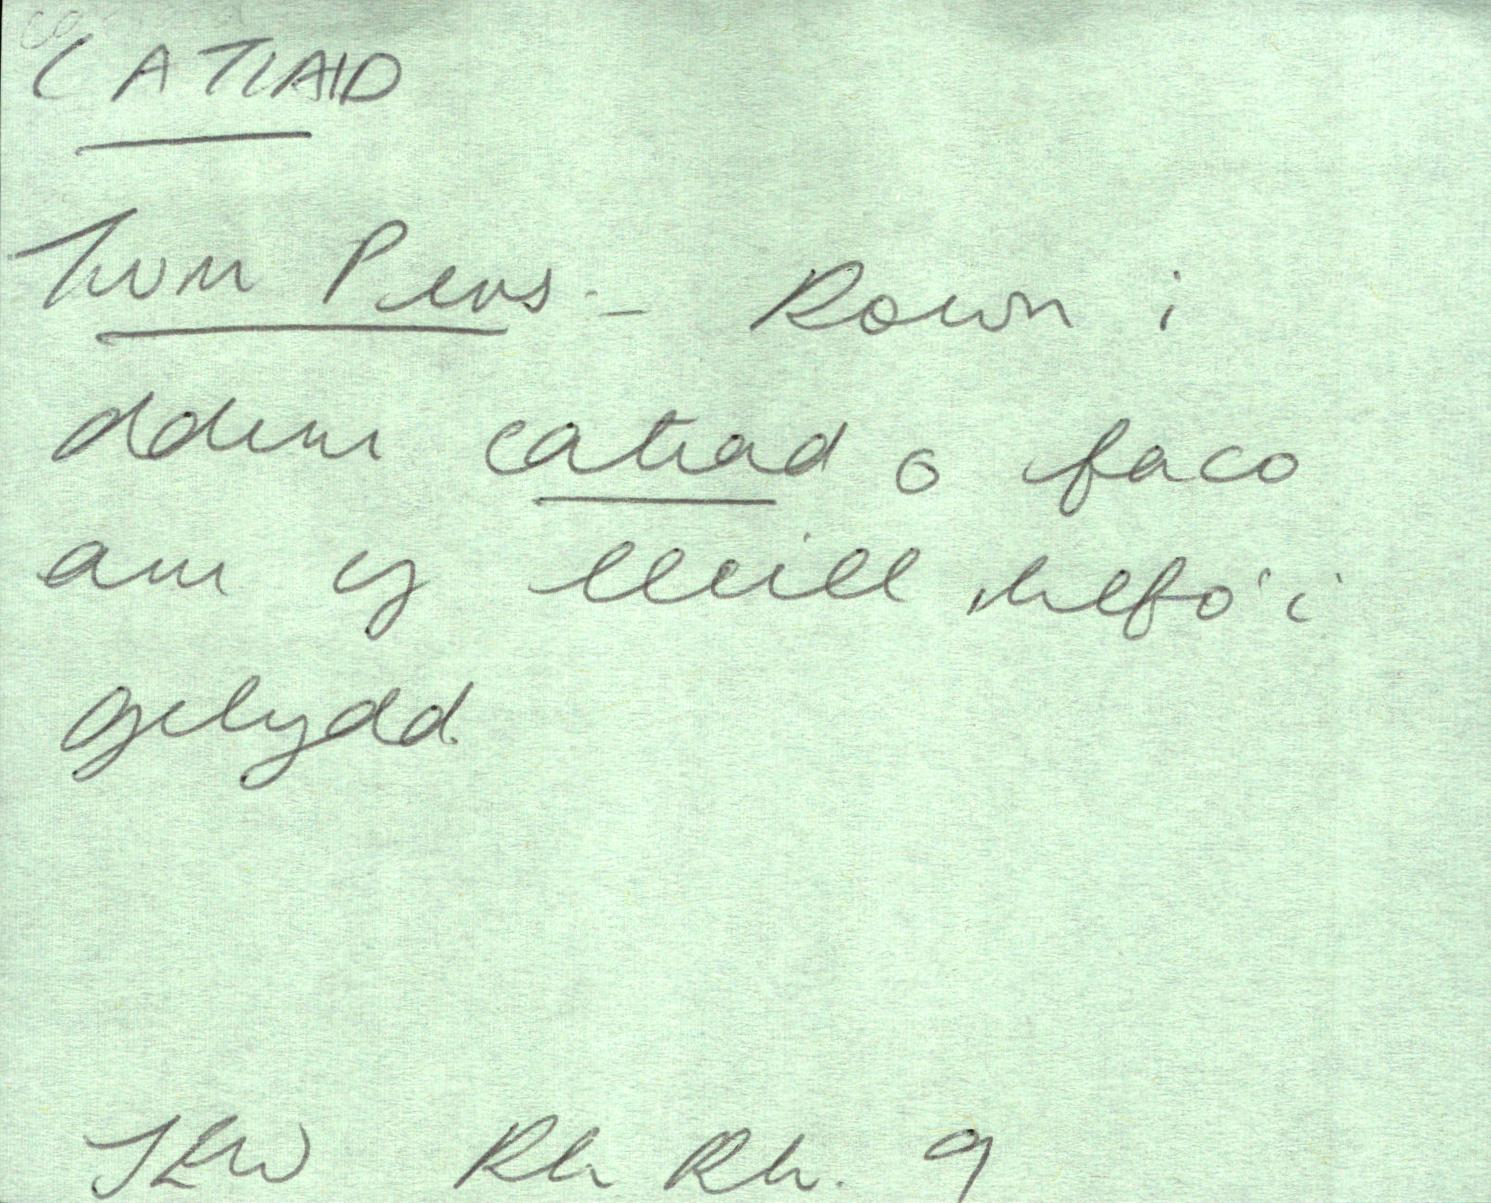 CATIAID
Twm Pens. - Rown i
ddim catiad o faco
am y lleill, helfo'i
gelydd.
JEW Rh Rh. 9